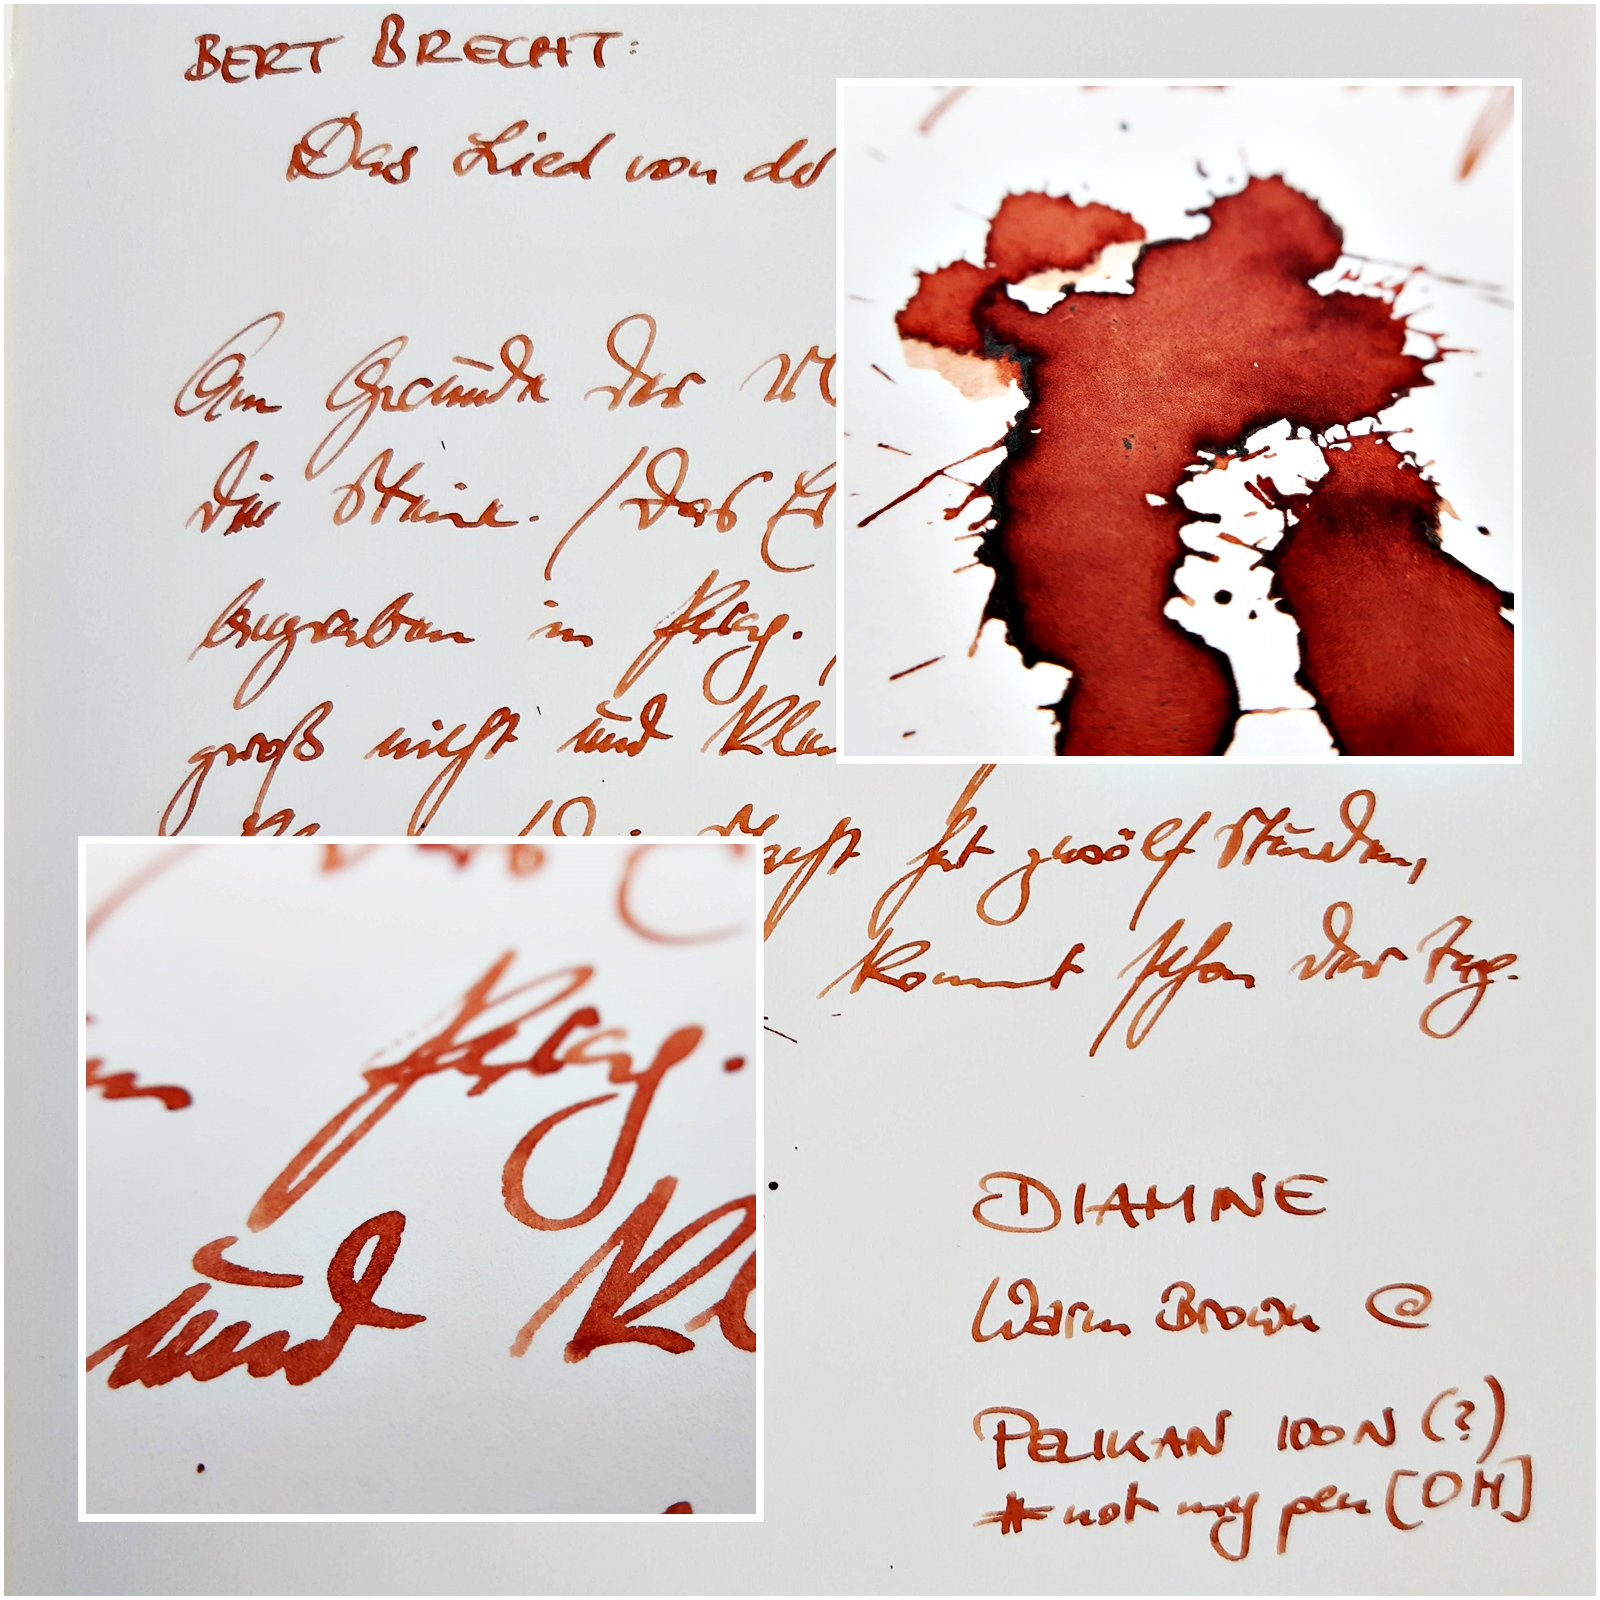 BERT BRECHT:
Das Lied von der
Am Grunde der M
die Steine. /
begraben in Prag. /
groß nicht und klei
acht hat zwölf Stunden,
kommt schon der Tag.
Prag.
und kl
DIAMINE
Warm Brown @
PELIKAN 100N (?)
#not my pen [OM]